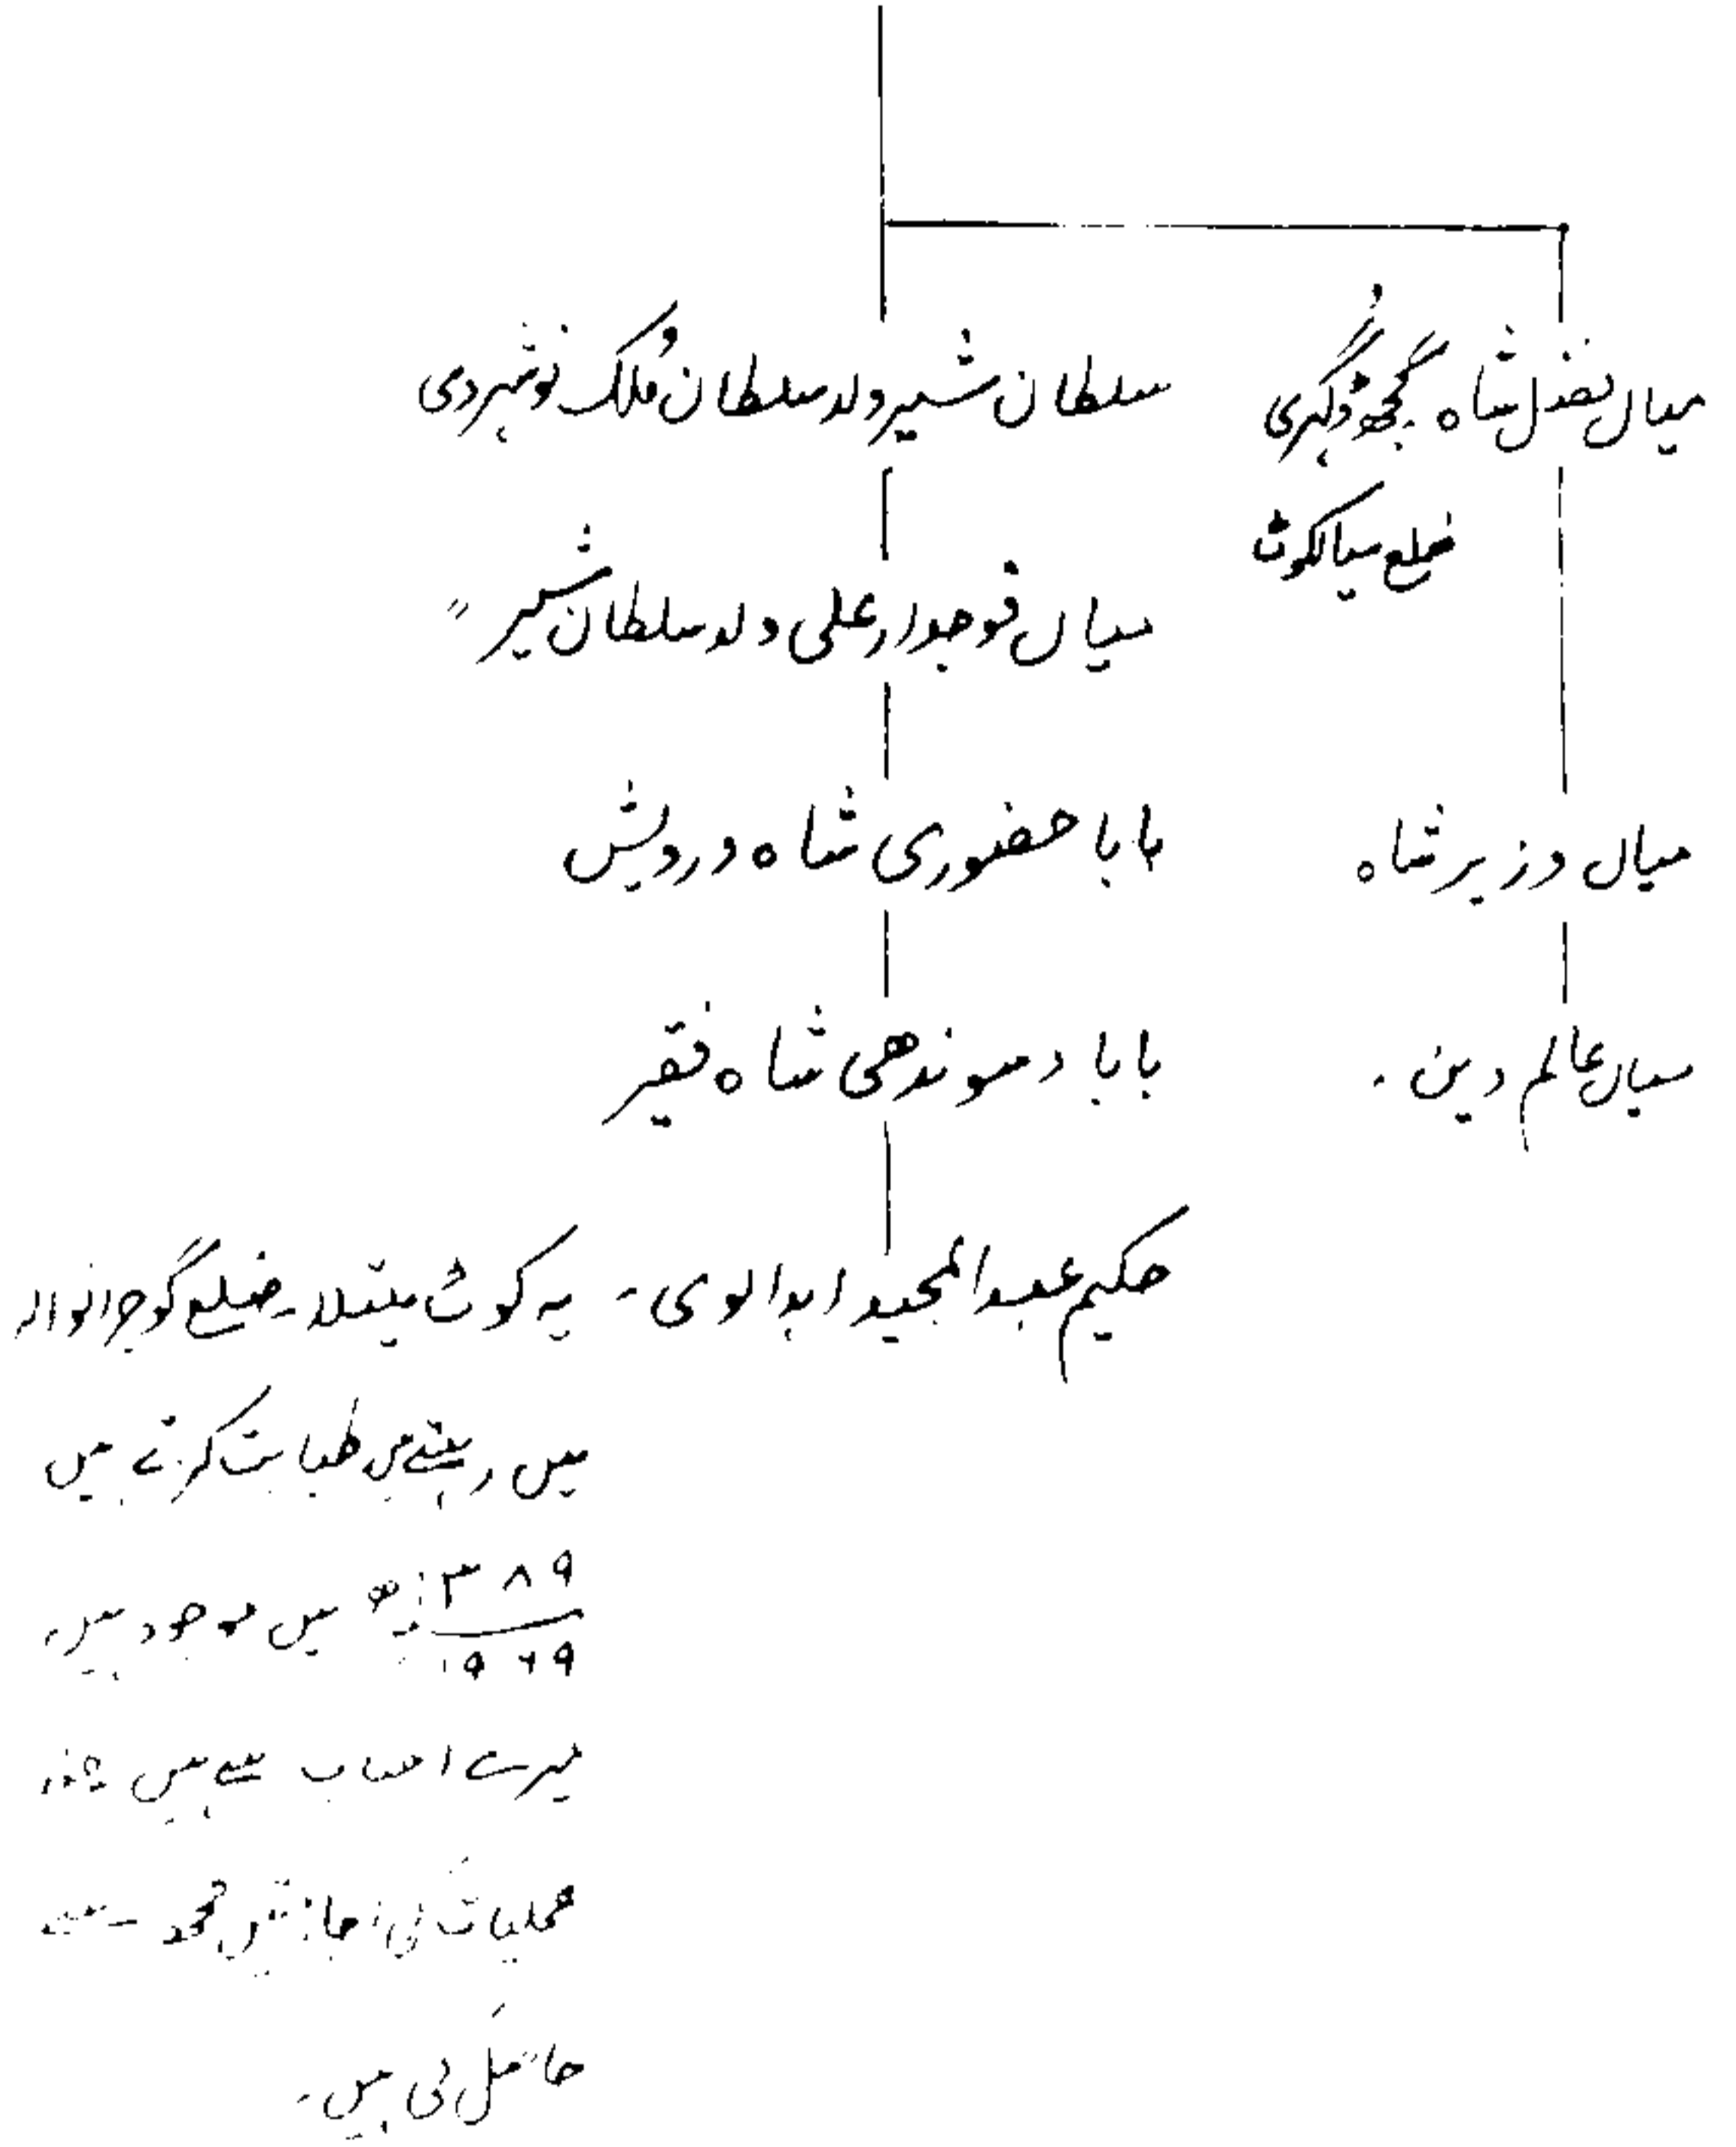 میاں فضل شاہ گجھ ڈگری
ضلع سیالکوٹ
سلطان شیر ولد سلطان مُلک نوشہروی
میاں فوجدار علی ولد سلطان شیر ״
میاں وزیر شاہ
بابا حضوری شاہ درویش
میاں عالم دین ۔
بابا دسوندھی شاہ فقیر
حکیم عبدالمجید ابدالوی ۔ یہ کوٹ ضلع گوجرانوالہ
میں رہتے ہیں طبابت کرتے ہیں
۱۳۸۹ھ / ۱۹۶۹ میں موجود ہیں۔
میرے احباب سے ہیں
عملیات کی اجازتیں مجھ سے
حاصل کی ہیں۔